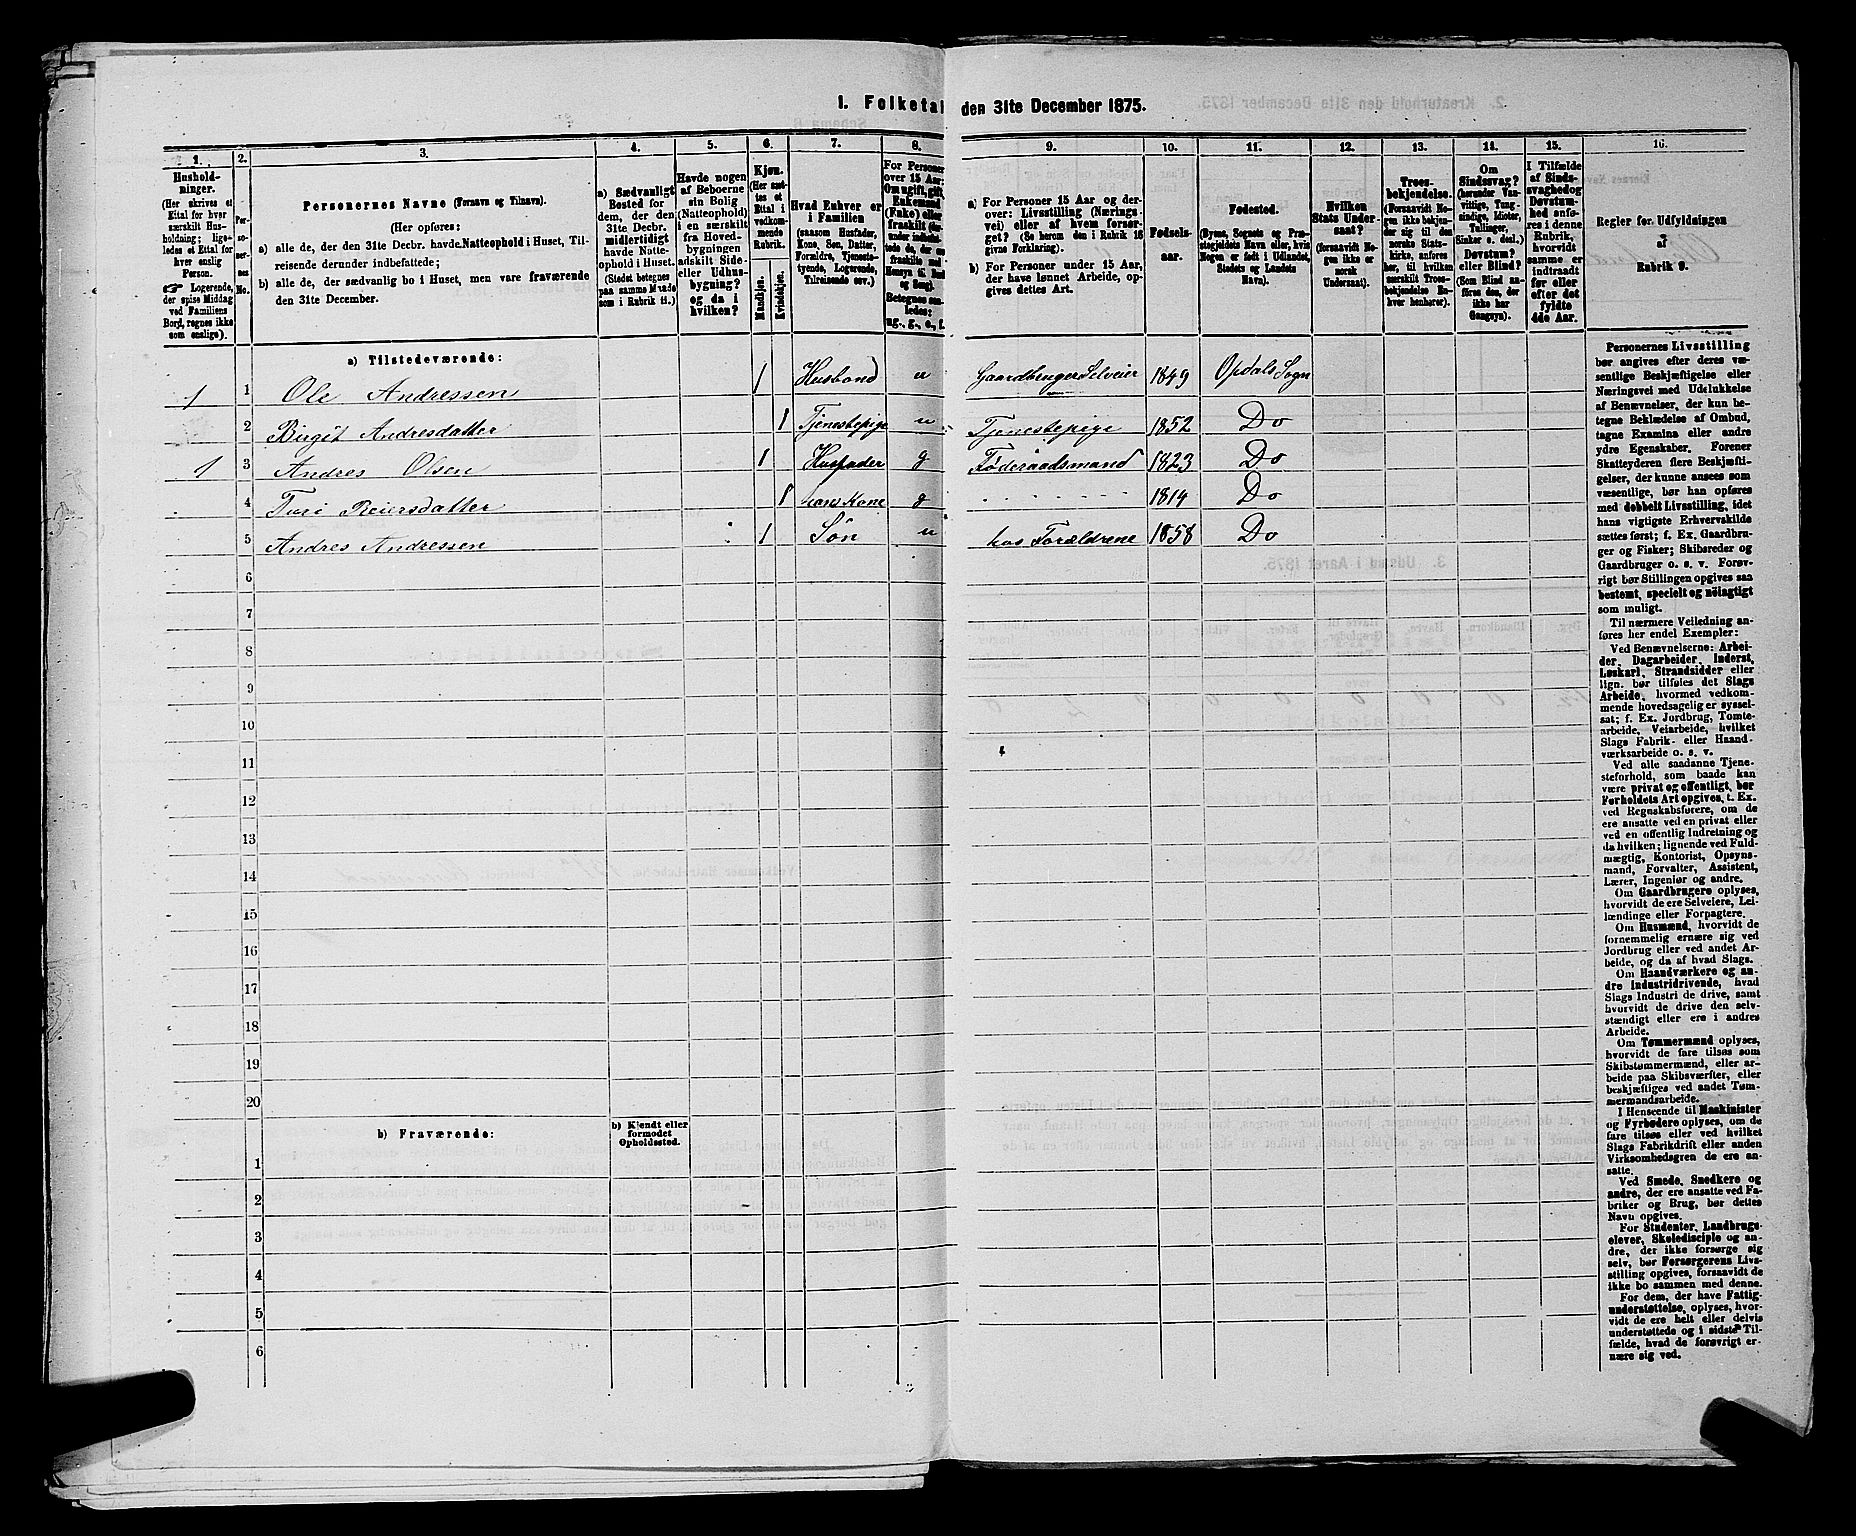 1. Folketal den 31te December 1875.
1. 2. 3. 4. 5. 6. 7. 8. 9. 10. 11. 12. 13. 14. 15. 16.
Husholdninger.
(Her skrives et Ettal for hver særskilt Husholdning; ligeledes et Ettal for hver enslig Person.
☛ Logerende, der spise Middag ved Familiens Bord, regnes ikke som enslige).
Personernes No.
Personernes Navne (Fornavn og Tilnavn).
(Her opføres:
a) alle de, der den 31te Decbr. havde Natteophold i Huset, Tilreisende derunder indbefattede;
b) alle de, der sædvanlig bo i Huset, men vare fraværende den 31te December.
a) Sædvanligt Bosted for dem, der den 31te Decbr. midlertidigt havde Natteophold i Huset. (Stedet betegnes paa samme Maade som i Rubrik 11.)
Havde nogen af Beboerne sin Bolig (Natteophold) i en særskilt fra Hovedbygningen adskilt Side- eller Udhusbygning? og da i hvilken?
Kjøn. (Her sættes et Ettal i vedkommende Rubrik.
Mandkjøn. Kvindekjøn.
Hvad Enhver er i Familien (saasom Husfader, Kone, Søn, Datter, Forældre, Tjenestetyende, Logerende, Tilreisende osv.)
For Personer over 15 Aar: Om ugift, gift, Enkemand (Enke) eller fraskilt
Betegnes saaledes: ug., g., e., f.
a) For Personer 15 Aar og derover: Livsstilling (Næringsvei) eller af hvem forsørget? (Se herom den i Rubrik 16 givne Forklaring).
b) For Personer under 15 Aar, der have lønnet Arbeide, opgives dettes Art.
Fødselsaar.
Fødested.
(Byens, Sognets og Præstegjeldets Navn eller, hvis Nogen er født i Udlandet, Stedets og Landets Navn).
Hvilken Stats Undersaat?
(forsaavidt Nogen ikke er norsk Undersaat).
Troesbekjendelse.
(Forsaavidt Nogen ikke bekjender sig til den norske Statskirke, anføres her, til hvilken særskilt Troesbekjendelse Enhver henhører).
Om Sindssvag? (herunder Vanvittige, Tungsindige, Idioter, Tullinger, Sinker o. desl.) Døvstum? eller Blind? (Som Blind anføres den, der ikke har Gangsyn).
I Tilfælde af Sindssvaghed og Døvstumhed anføres i denne Rubrik, hvorvidt samme er indtraadt før eller efter det fyldte 4de Aar.
Regler for Udfyldningen af Rubrik 9.
a) Tilstedeværende:
1 1 Ole Andressen 1 Husbond u Gaardbruger Selveier 1849 Opdals Sogn
2 Birgit Andresdatter 1 Tjenestepige u Tjenestepige 1852 Do
1 3 Andres Olsen 1 Husfader g Føderaadsmand 1823 Do
4 Turi Reiersdatter 1 hans Kone g 1814 Do
5 Andres Andressen 1 Søn u hos Forældrene 1858 Do
6
7
8
9
10
11
12
13
14
15
16
17
18
19
20
b) Fraværende: b) Kjendt eller formodet Opholdssted.
1
2
3
4
5
6
Personernes Livsstilling
bør angives efter deres væ-
sentlige Beskjæftigelse eller
Næringsvei med Udelukkelse
af Benævnelser, der kun be-
tegne Beklædelse af Ombud,
tagne Examina eller andre
ydre Egenskaber. Forener
Skatteyderen flere Beskjæfti-
gelser, der kunne ansees som
væsentlige, bør han opføres
med dobbelt Livsstilling, idet
hans vigtigste Erhvervskilde
sættes først; f. Ex. Gaardbru-
ger og Fisker; Skibsreder og
Gaardbruger o. s. v. Forøv-
rigt bør Stillingen opgives saa
bestemt, specielt og nøiagtigt
som muligt.
Til nærmere Veiledning an-
føres her endel Exempler:
Ved Benævnelserne: Arbei-
der, Dagarbeider, Inderst,
Løskarl, Strandsidder eller
lign. bør tilføies det Slags
Arbeide, hvormed vedkom-
mende hovedsagelig er syssel-
sat; f. Ex. Jordbrug, Tomte-
arbeide, Veiarbeide, hvilket
Slags Fabrik- eller Haand-
værksarbeide o. s. v.
Ved alle saadanne Tjene-
steforhold, som baade kan
være privat og offentligt, bør
Forholdets Art opgives, t. Ex.
ved Regnskabsførere, om de
ere ansatte ved en privat eller
ved en offentlig Indretning og
da hvilken; lignende ved Fuld-
mægtig, Kontorist, Opsyns-
mand, Forvalter, Assistent,
Lærer, Ingeniør og andre.
Om Gaardbrugere oplyses,
hvorvidt de ere Selveiere, Lei-
lændinge eller Forpagtere.
Om Husmænd, hvorvidt de
fornemmelig ernære sig ved
Jordbrug eller ved andet Ar-
beide, og da af hvad Slags.
Om Haandværkere og an-
dre Industridrivende, hvad
Slags Industri de drive, samt
hvorvidt de drive den selv-
stændigt eller ere i andres
Arbeide.
Om Tømmermænd oplyses,
hvorvidt de fare tilsøs som
Skibstømmermænd, eller ar-
beide paa Skibsværfter, eller
beskjæftiges ved andet Tøm-
mermandsarbeide.
I Henseende til Maskinister
og Fyrbødere oplyses, om de
fare tilsøs eller ved hvilket
Slags Fabrikdrift eller anden
Virksomhedsgren de ere an-
satte.
Ved Smede, Snedkere og
andre, der ere ansatte ved Fa-
briker og Brug, bør dettes
Navn opgives.
For Studenter, Landbrugs-
elever, Skoledisciple og an-
dre, der ikke forsørge sig
selv, bør Forsørgerens Livs-
stilling opgives, forsaavidt de
ikke bo sammen med denne.
For dem, der have Fattig-
understøttelse, oplyses, hvor-
vidt de ere helt eller delvis
understøttede og i sidste Til-
fælde, hvad de forøvrigt er-
nære sig ved.